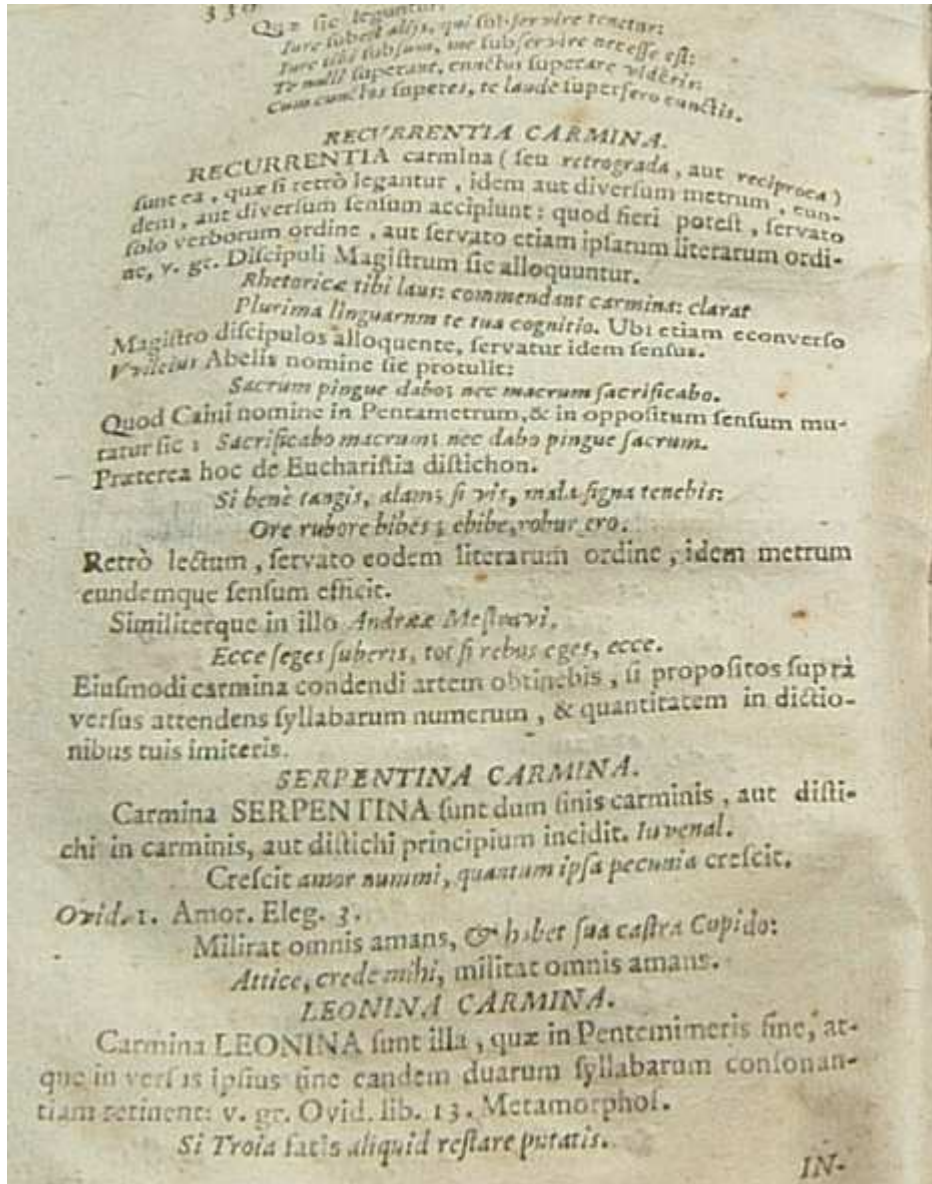 330
Quæ sic leguntur:
Iure subest alijs, qui subservire tenetur:
Iure tibi subsum, me subservire necesse est:
Te nulli superant, cunctos superare videris:
Cum cunctos superes, te laude superfero cunctis.
RECURRENTIA CARMINA.
RECURRENTIA carmina (seu retrograda, aut reciproca)
sunt ea, quæ si retrò legantur, idem aut diversum metrum, eun-
dem, aut diversum sensum accipiunt: quod fieri potest, servato
solo verborum ordine, aut servato etiam ipsarum literarum ordi-
ne, v. gr. Discipuli Magistrum sic alloquuntur.
Rhetoricæ tibi laus: commendant carmina: clarat
Plurima linguarum te tua cognitio. Ubi etiam econverso
Magistro discipulos alloquente, servatur idem sensus.
Abelis nomine sic protulit:
Sacrum pingue dabo; nec macrum sacrificabo.
Quod Caini nomine in Pentametrum, & in oppositum sensum mu-
tatur sic: Sacrificabo macrum; nec dabo pingue sacrum.
Præterea hoc de Eucharistia distichon.
Si benè tangis, alam; si vis, mala signa tenebis:
Ore rubore bibes; ebibe, robur ero.
Retrò lectum, servato eodem literarum ordine, idem metrum
eundemque sensum efficit.
Similiterque in illo Andreæ Mestravi.
Ecce seges suberis, tot si rebus eges, ecce.
Eiusmodi carmina condendi artem obtinebis, si propositos suprà
versus attendens syllabarum numerum, & quantitatem in dictio-
nibus tuis imiteris.
SERPENTINA CARMINA.
Carmina SERPENTINA sunt dum finis carminis, aut disti-
chi in carminis, aut distichi principium incidit. Iuvenal.
Crescit amor nummi, quantum ipsa pecunia crescit.
Ovid. 1. Amor. Eleg. 3.
Militat omnis amans, & habet sua castra Cupido:
Attice, crede mihi, militat omnis amans.
LEONINA CARMINA.
Carmina LEONINA sunt illa, quæ in Pentemimeris fine, at-
que in versus ipsius fine eandem duarum syllabarum consonan-
tiam retinent: v. gr. Ovid. lib. 13. Metamorphos.
Si Troia fatis aliquid restare putatis.
IN-